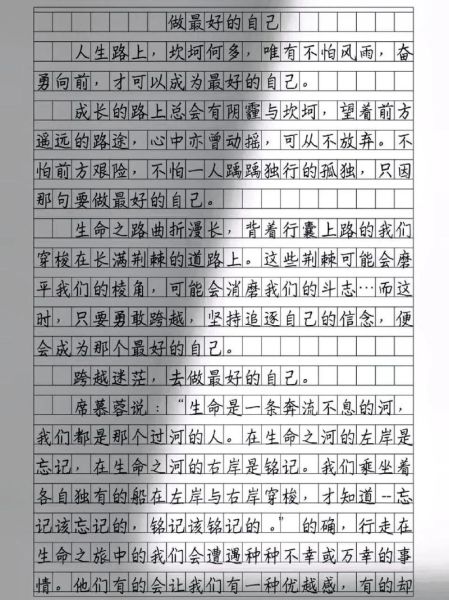 做最好的自己
人生路上，坎坷何多，唯有不怕风雨，奋
勇向前，才可以成为最好的自己。
成长的路上总会有阴霾与坎坷，望着前方
遥远的路途，心中亦曾动摇，可从不放弃。不
怕前方艰险，不怕一人踽踽独行的孤独，只因
那句要做最好的自己。
生命之路曲折漫长，背着行囊上路的我们
穿梭在长满荆棘的道路上。这些荆棘可能会磨
平我们的棱角，可能会消磨我们的斗志…而这
时，只要勇敢跨越，坚持追逐自己的信念，便
会成为那个最好的自己。
跨越迷茫，去做最好的自己。
席慕蓉说：“生命是一条奔流不息的河，
我们都是那个过河的人。在生命之河的左岸是
忘记，在生命之河的右岸是铭记。我们乘坐着
各自独有的船在左岸与右岸穿梭，才知道--忘
记该忘记的，铭记该铭记的。”的确，行走在
生命之旅中的我们会遭遇种种不幸或万幸的事
情。他们有的会让我们有一种优越感，有的却